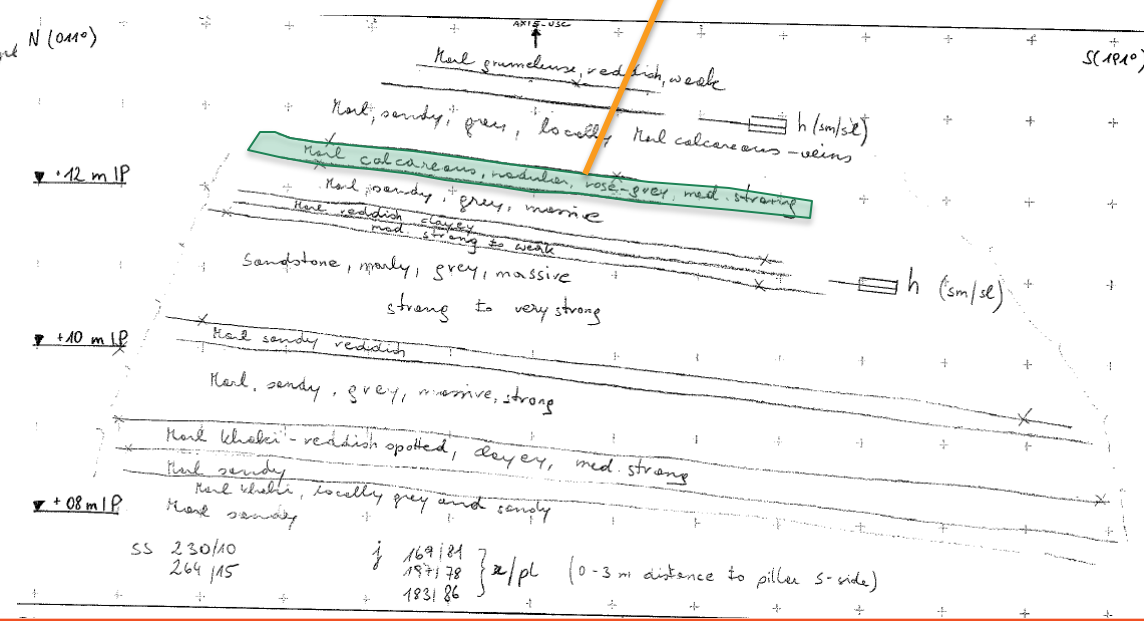 AXIS-USC
N (011°)
S(191°)
Marl grumeleuse, reddish, weak
h (sm/sl)
Marl, sandy, grey, locally Marl calcareous-veins
Marl calcareous, nodular, rosé-grey, med. strong
+12 m IP
Marl, sandy, grey, massive
Marl reddish clayey
med. strong to weak
Sandstone, marly, grey, massive
h (sm/sl)
strong to very strong
+10 m IP
Marl sandy reddish
Marl, sandy, grey, massive, strong
Marl khaki-reddish spotted, clayey, med. strong
Marl sandy
Marl khaki, locally grey and sandy
+08 m IP
Marl sandy
SS 230/10
264/15
j 169/81
197/78
183/86
(0-3 m distance to pillar S-side)